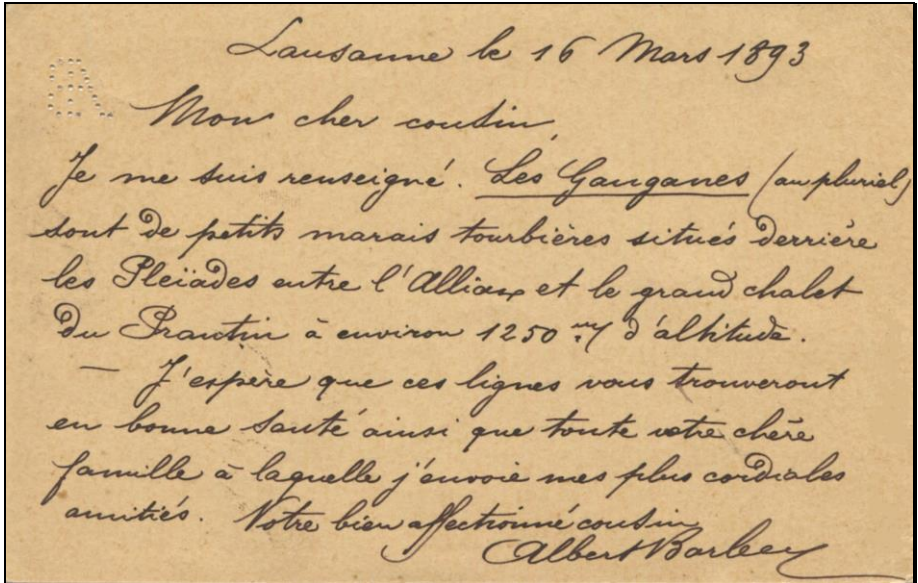 Lausanne le 16 Mars 1893
Mon cher cousin,
Je me suis renseigné. Les Gauganes (au pluriel)
sont de petits marais tourbières situés derrière
les Pleïades entre l'Alliax et le grand chalet
du Prantin à environ 1250 m/ d'altitude.
— J'espère que ces lignes vous trouveront
en bonne santé ainsi que toute votre chère
famille à laquelle j'envoie mes plus cordiales
amitiés. Votre bien affectionné cousin
Albert Barbey